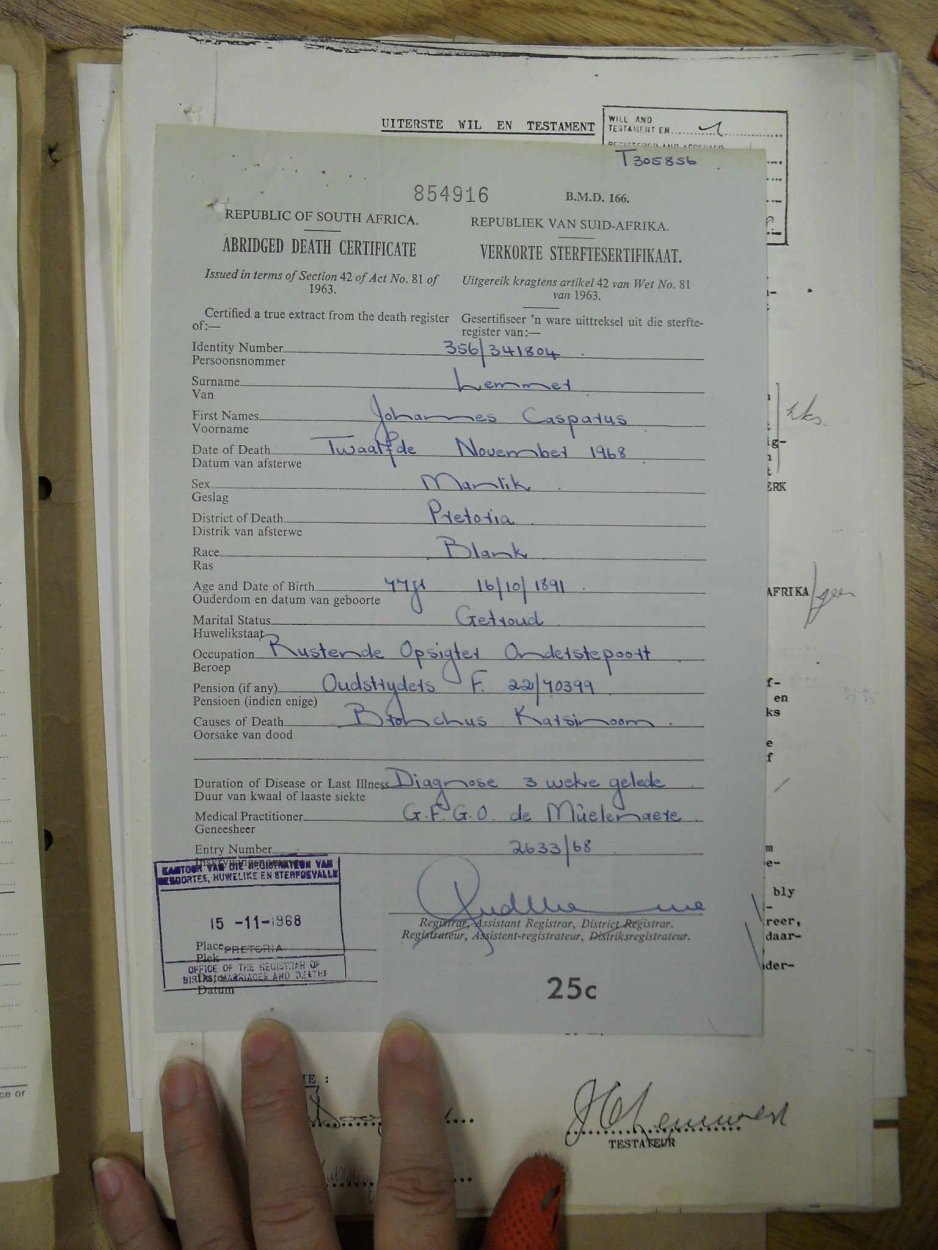 UITERSTE WIL EN TESTAMENT
WILL AND
TESTAMENT EN
T305856
854916
B.M.D. 166.
REPUBLIC OF SOUTH AFRICA.
REPUBLIEK VAN SUID-AFRIKA.
ABRIDGED DEATH CERTIFICATE
VERKORTE STERFTESERTIFIKAAT.
Issued in terms of Section 42 of Act No. 81 of
1963.
Uitgereik kragtens artikel 42 van Wet No. 81
van 1963.
Certified a true extract from the death register
of:—
Gesertifiseer 'n ware uittreksel uit die sterfte-
register van:—
Identity Number 356/341804
Persoonsnommer
Surname Lemmer
Van
First Names Johannes Casparus
Voorname
Date of Death Twaalfde November 1968
Datum van afsterwe
Sex Manlik
Geslag
District of Death Pretoria
Distrik van afsterwe
Race Blank
Ras
Age and Date of Birth 77jr 16/10/1891
Ouderdom en datum van geboorte
Marital Status Getroud
Huwelikstaat
Occupation Rustende Opsigter Onderstepoort
Beroep
Pension (if any) Oudstryders F. 22/70399
Pensioen (indien enige)
Causes of Death Bronchus Karsinoom
Oorsake van dood
Duration of Disease or Last Illness Diagnose 3 weke gelede
Duur van kwaal of laaste siekte
Medical Practitioner G.F.G.O. de Müelenaere
Geneesheer
Entry Number 2633/68
KANTOOR VAN DIE REGISTRATEUR VAN
GEBOORTES, HUWELIKE EN STERFGEVALLE
15 -11-1968
Place PRETORIA
Plek
OFFICE OF THE REGISTRAR OF
BIRTHS, MARRIAGES AND DEATHS
Datum
Registrar, Assistant Registrar, District Registrar.
Registrateur, Assistent-registrateur, Distriksregistrateur.
25c
ERK
AFRIKA
en
ks
bly
reer,
daar-
der-
TESTATEUR